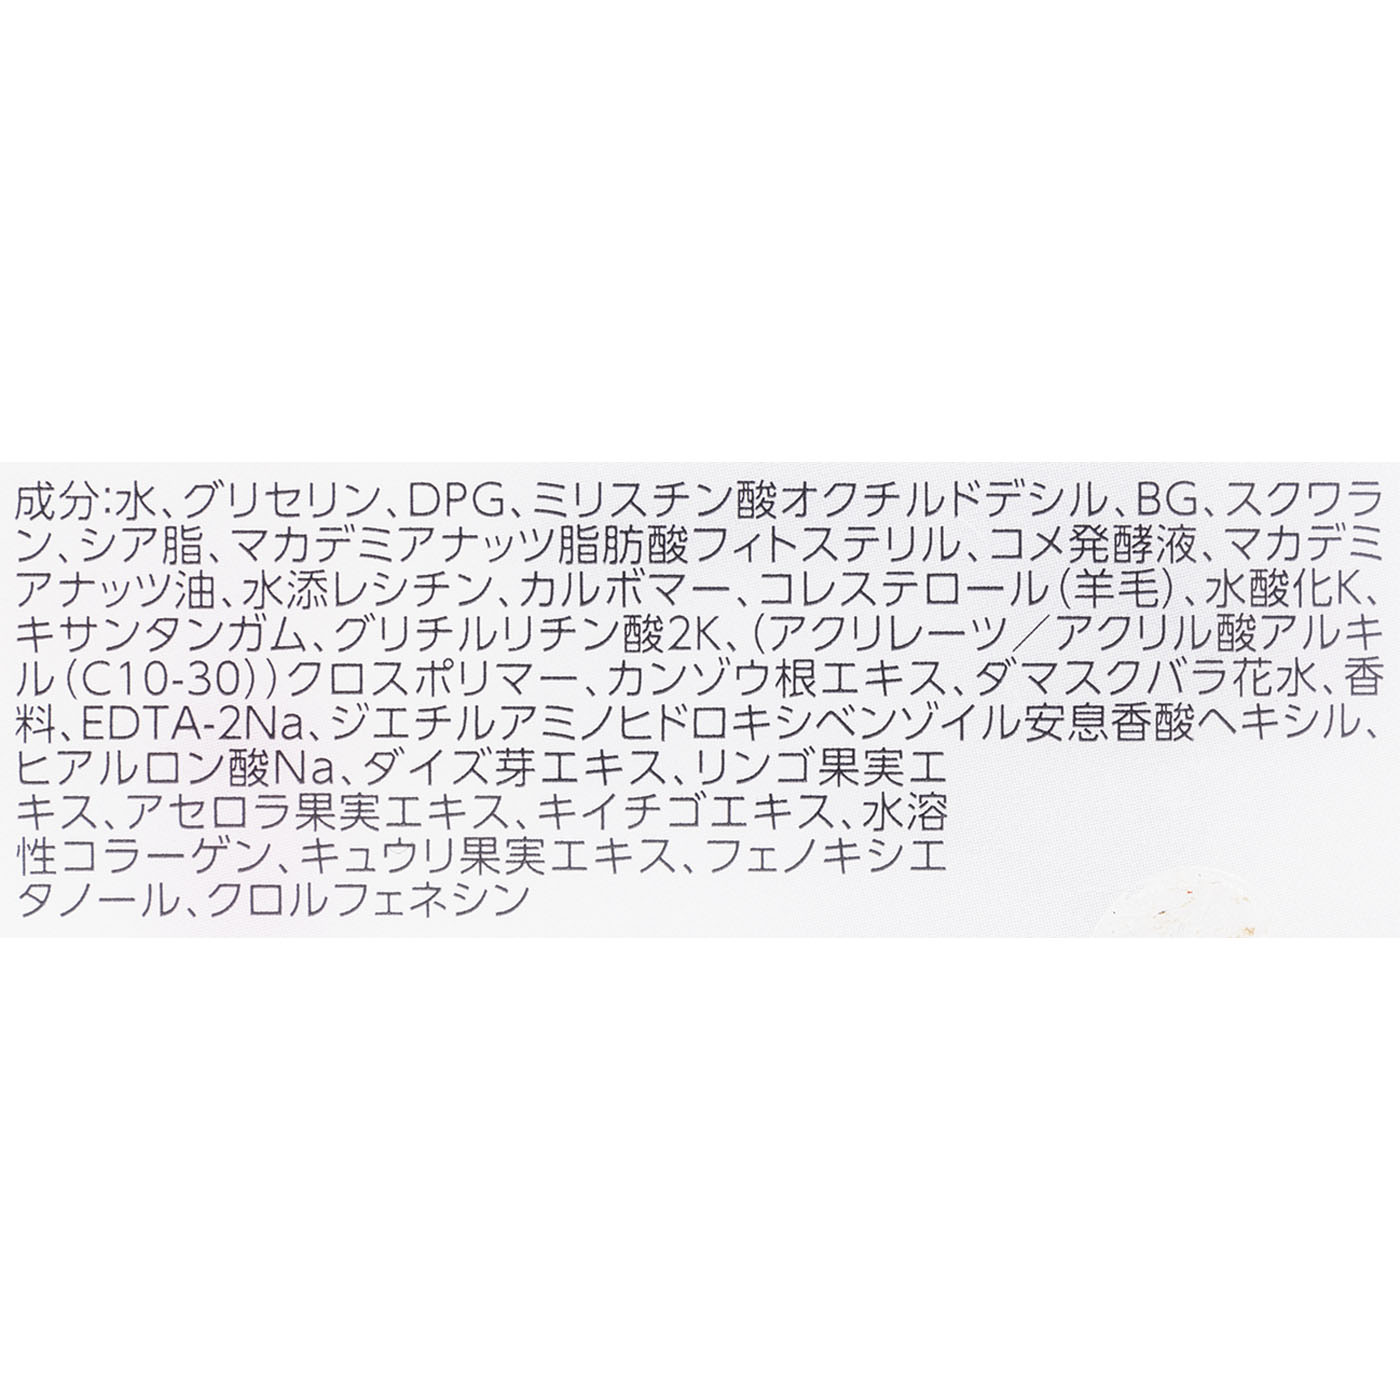 成分:水、グリセリン、DPG、ミリスチン酸オクチルドデシル、BG、スクワラ
ン、シア脂、マカデミアナッツ脂肪酸フィトステリル、コメ発酵液、マカデミ
アナッツ油、水添レシチン、カルボマー、コレステロール(羊毛)、水酸化K、
キサンタンガム、グリチルリチン酸2K、(アクリレーツ/アクリル酸アルキ
ル(C10-30))クロスポリマー、カンゾウ根エキス、ダマスクバラ花水、香
料、EDTA-2Na、ジエチルアミノヒドロキシベンゾイル安息香酸ヘキシル、
ヒアルロン酸Na、ダイズ芽エキス、リンゴ果実エ
キス、アセロラ果実エキス、キイチゴエキス、水溶
性コラーゲン、キュウリ果実エキス、フェノキシエ
タノール、クロルフェネシン